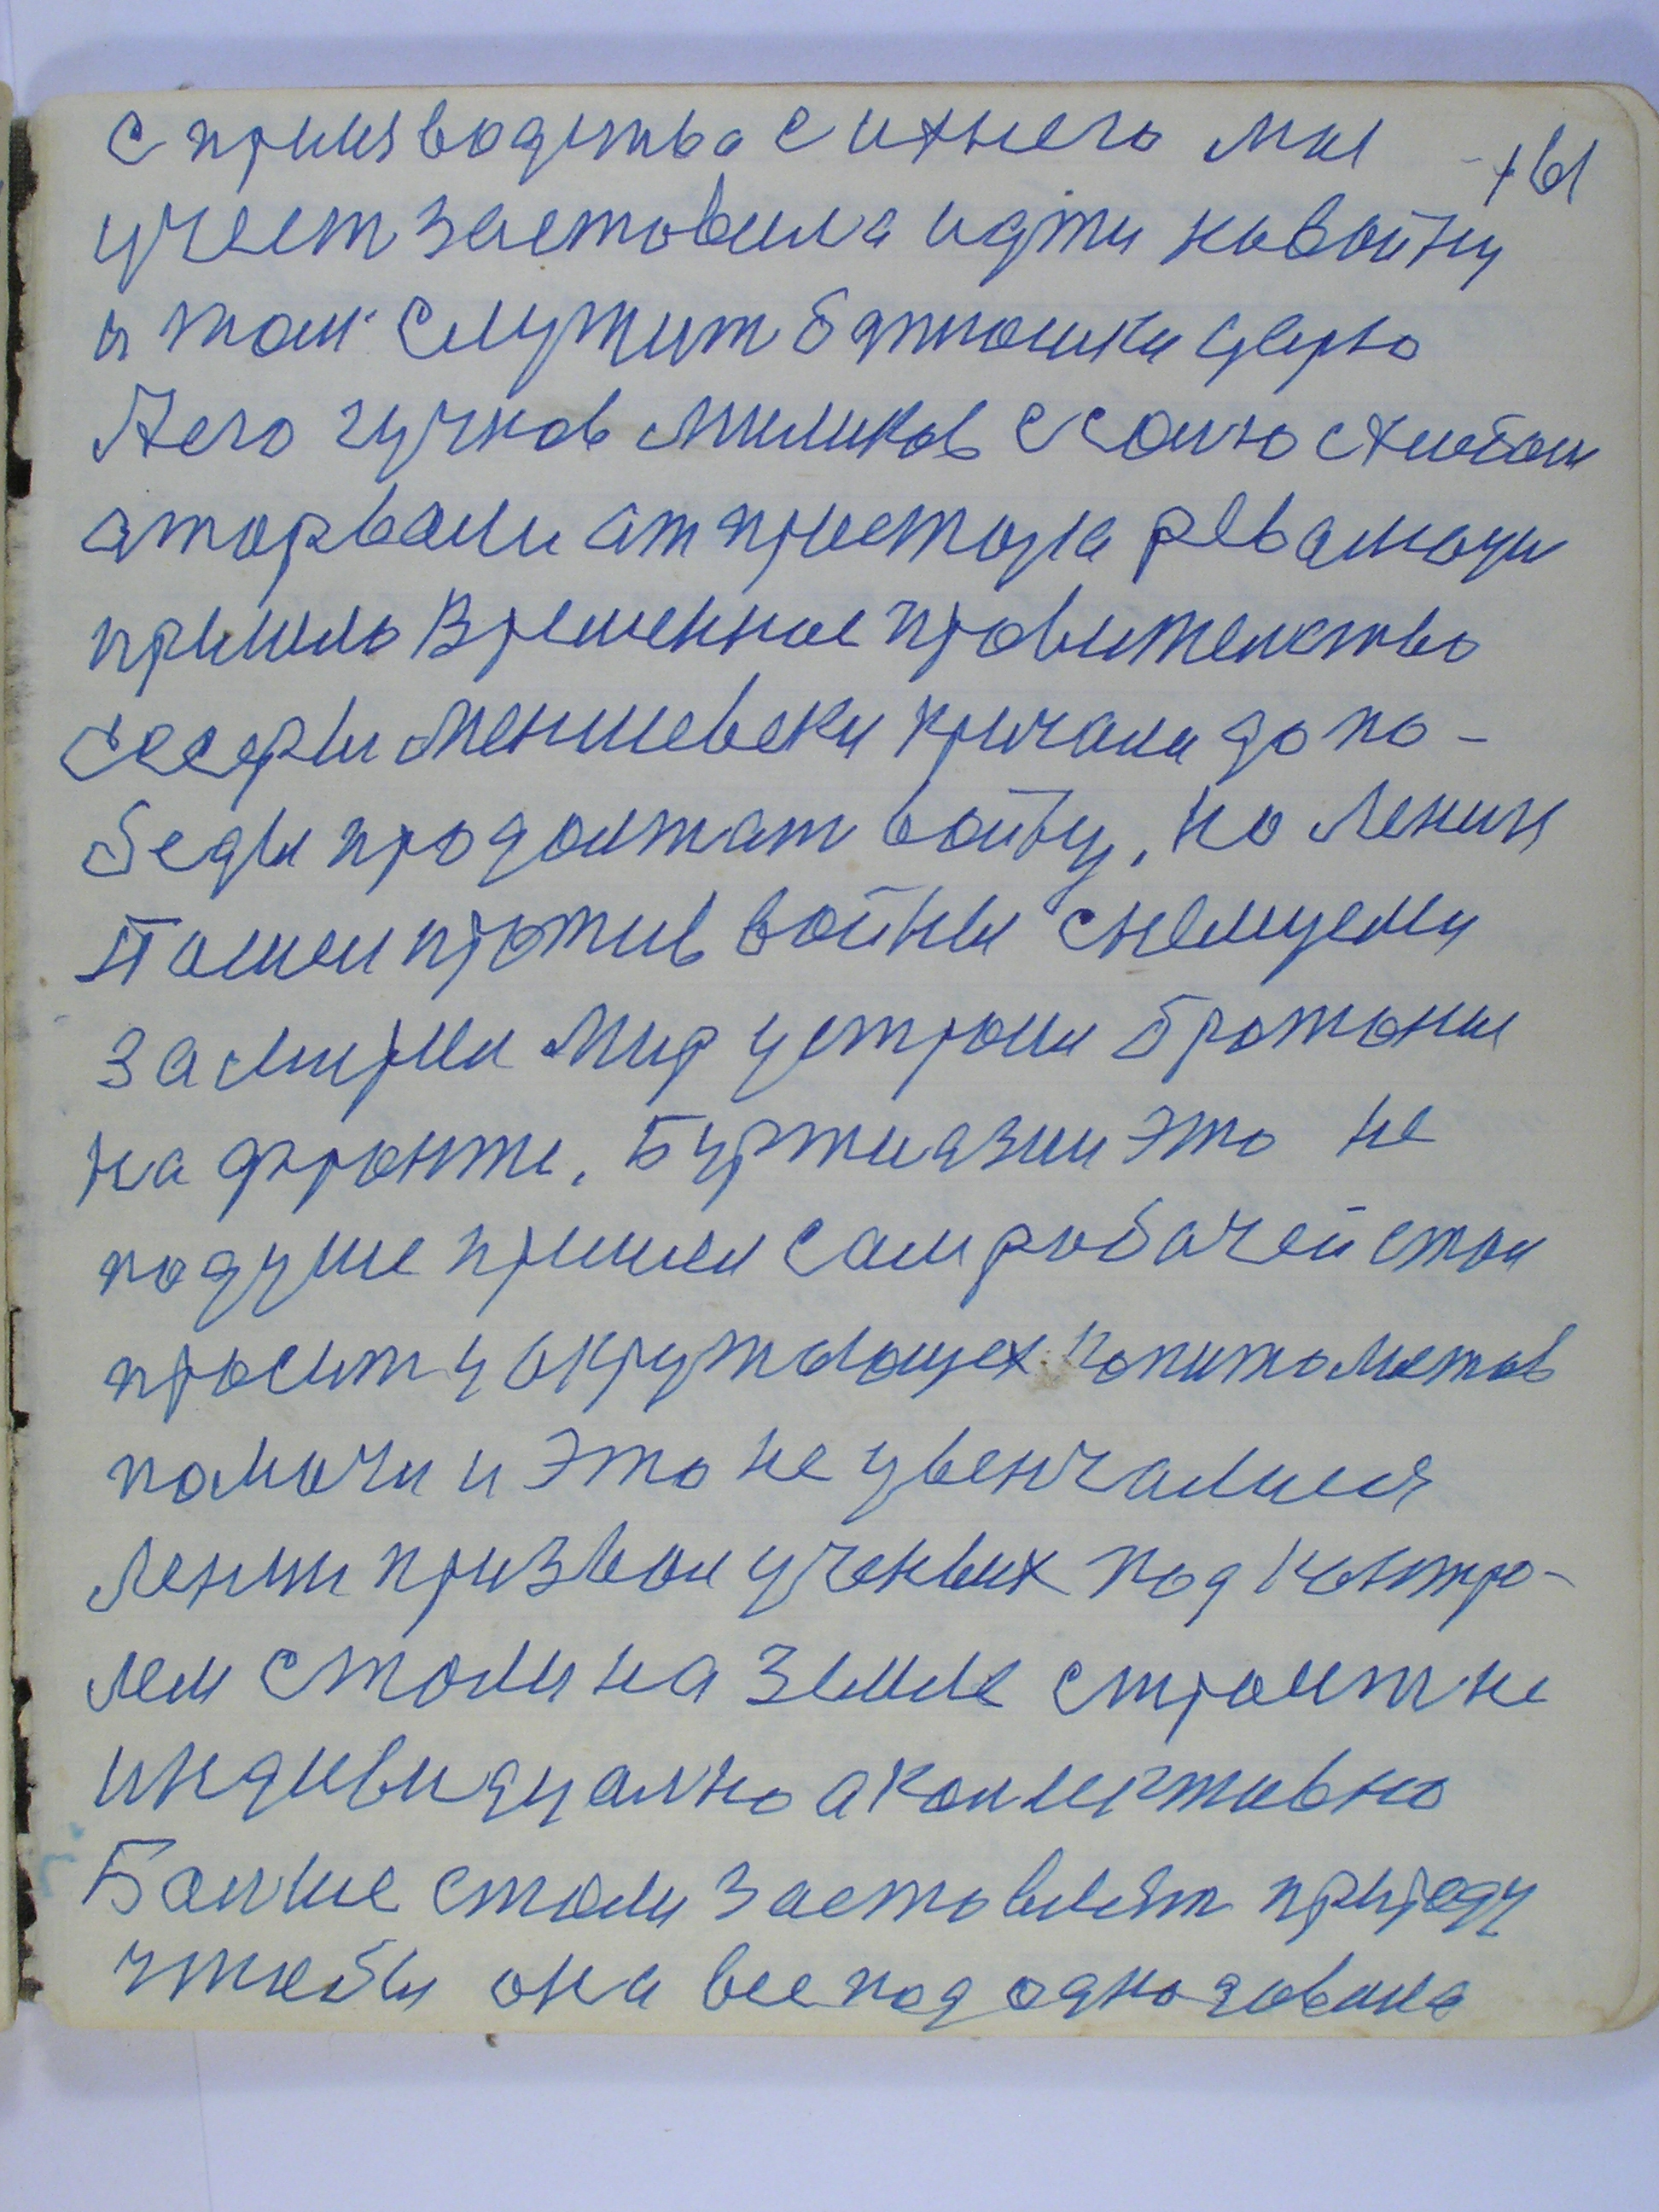 с приизводства с ихнего мы
учест заставила идти навойну
и там служит батюшки царю
Аего гучков миликов с саню с хитом
аторвали ат престола ревалюци
пришло Временное провительство
Сесеры Меншевеки кричали до по-
беды продолжат войну, но Ленин
Пашол против войны снемцеми
замиры Мир устроил братони
на фронте. Буржиазии это не
подуше пришол сам рабочей стал
просит у окружающех капиталистов
помочи и это не увенчалися
Ленин призвал ученых под контро-
лем стали на Земле строит не
индивидуално а коллективно
Болше стали заставлят природу
чтобы она все подоно давала